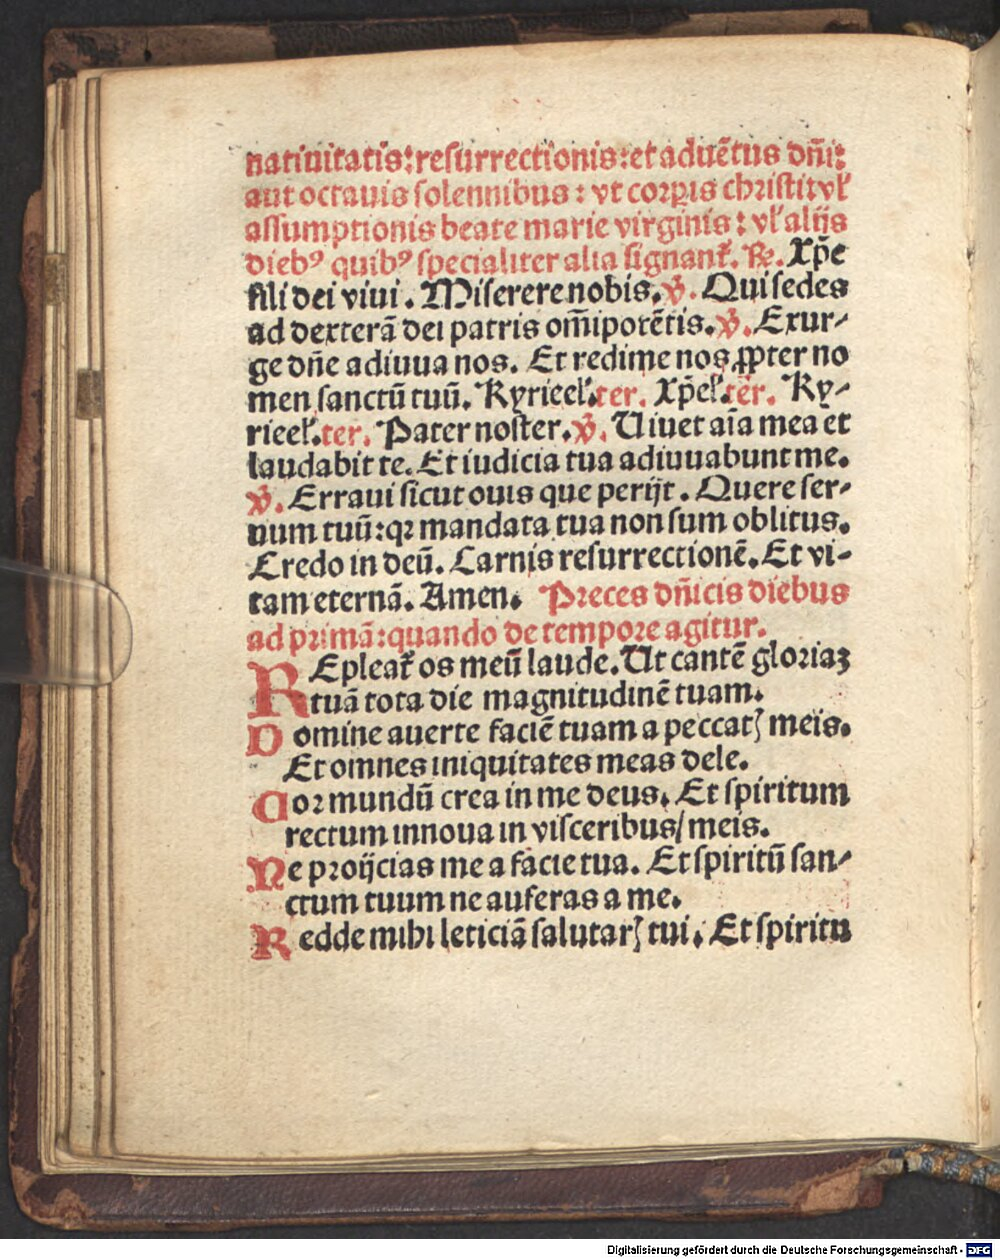 natiuitatis: resurrectionis: et aduētus dn̄i:
aut octauis solennibus: vt corpꝑis christi: vꝉ
assumptionis beate marie virginis: vꝉ alijs
diebꝰ quibꝰ specialiter alia signant᷑. ℟. Xp̄e
fili dei viui. Miserere nobis. ℣. Qui sedes
ad dexterā dei patris om̄ipotētis. ℣. Exur-
ge dn̄e adiuua nos. Et redime nos ꝓpter no
men sanctū tuū. Kyrieeꝉ. ter. Xp̄eꝉ. ter. Ky-
rieeꝉ. ter. Pater noster. ℣. Uiuet aīa mea et
laudabit te. Et iudicia tua adiuuabunt me.
℣. Erraui sicut ouis que perijt. Quere ser-
uum tuū: qꝛ mandata tua non sum oblitus.
Credo in deū. Carnis resurrectionē. Et vi-
tam eternā. Amen. Preces dn̄icis diebus
ad primā: quando de tempore agitur.
REpleat᷑ os meū laude. Ut cantē gloriaꝫ
tuā tota die magnitudinē tuam.
Domine auerte faciē tuam a peccatꝭ meis.
Et omnes iniquitates meas dele.
Cor mundū crea in me deus. Et spiritum
rectum innoua in visceribus/ meis.
Ne proijcias me a facie tua. Et spiritū san-
ctum tuum ne auferas a me.
Redde mihi leticiā salutarꝭ tui. Et spiritu
Digitalisierung gefördert durch die Deutsche Forschungsgemeinschaft - DFG